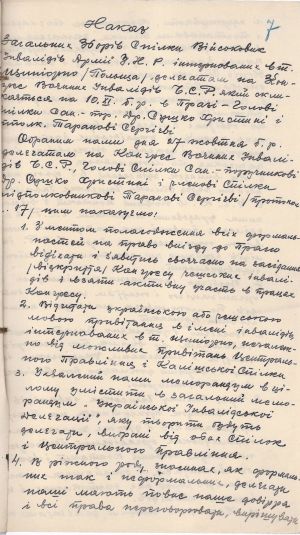 7
Наказ
Загальних Зборів Спілки Військових
Інвалідів Армії У.Н.Р. інтернованих в т.
Щипіорно /Польща/, делегатам на Кон-
грес Воєнних Інвалідів Ч.С.Р. який скли-
кається на 10.II. б.р. в Празі - Голові
Спілки Сан.-пор. Др. Сушко Христині і
підполк. Таракові Сергієві
Обраним нами дня 27 жовтня б.р.
делегатам на Конгрес Воєнних Інвалі-
дів Ч.С.Р., Голові Спілки Сан.-поручникові
Др. Сушко Христині і членові Спілки
підполковникові Таракові Сергієві /протокол
17/ цим наказуємо:
1. З метою полагодження всіх формаль-
ностей на право виїзду до Праги
відїхати і явитись своєчасно на засідання
/відкриття/ Конгресу чеських інвалі-
дів і взяти активну участь в працях
Конгресу.
2. Відчитати українською або чеською
мовою привітання в імені інвалідів
інтернованих в т. Щипіорно, незалеж-
но від можливих привітань Централь-
ного Правління і Каліської Спілки.
3. Ухвалений нами меморандум в ці-
лому умістити в загальний мемо-
рандум Української Інвалідської
Делегації, яку творити будуть
делегати, вибрані від обох Спілок
і Центрального Правління.
4. В ріжного роду зносинах, як формаль-
них так і неформальних, делегати
наші мають повне наше довірря
і всі права переговорювати, вирішувати